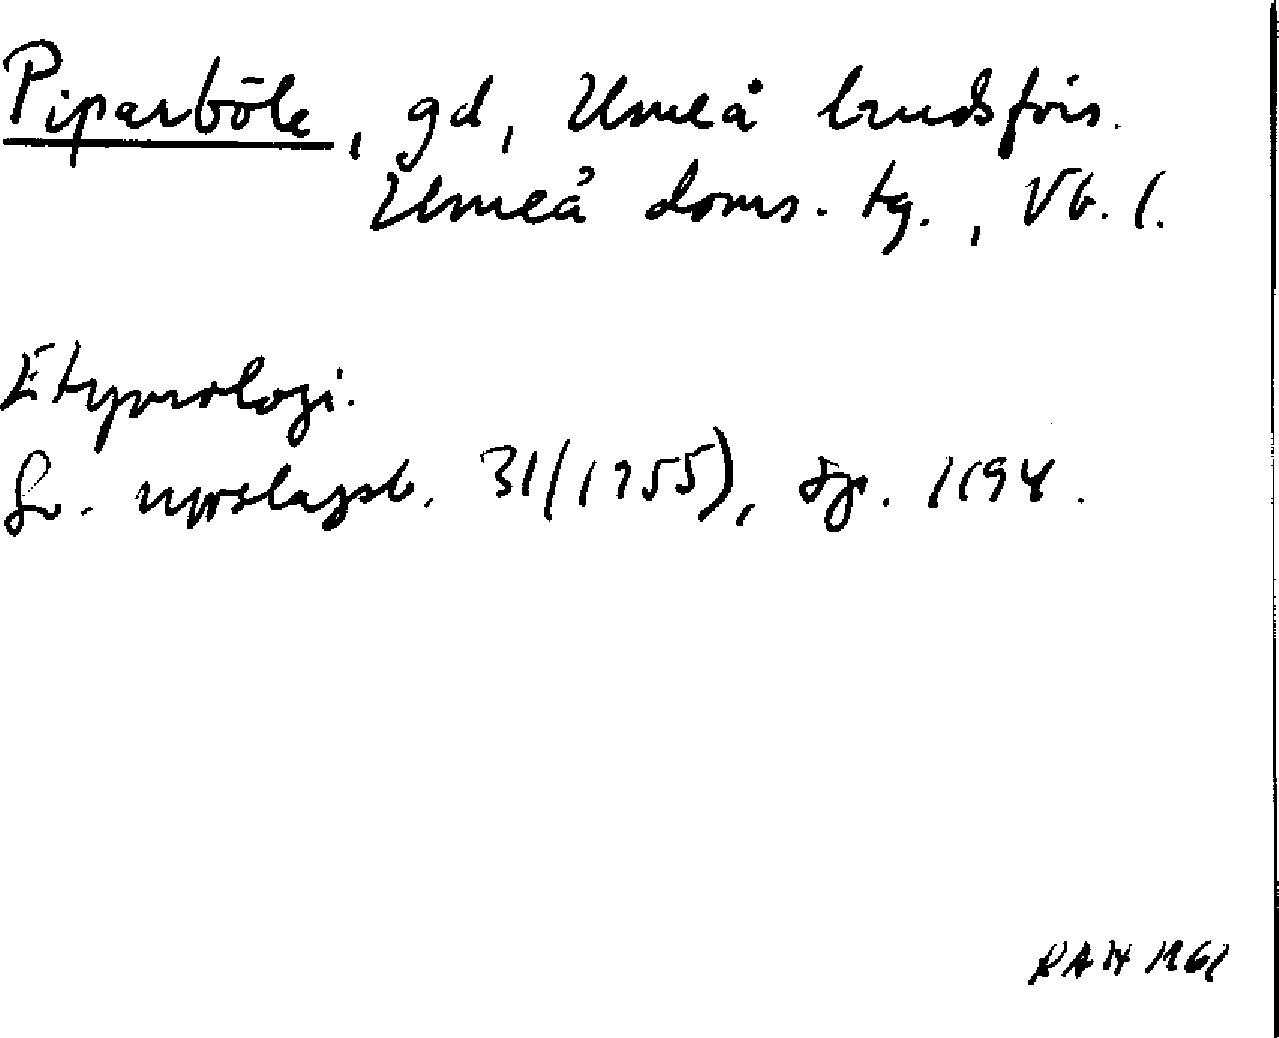 Piparböle, gd, Umeå landsförs.
Umeå doms. tg., Vb. l.
Etymologi.
Sv. uppslagsb. 31 (1955), sp. 1194.
RAH 1961